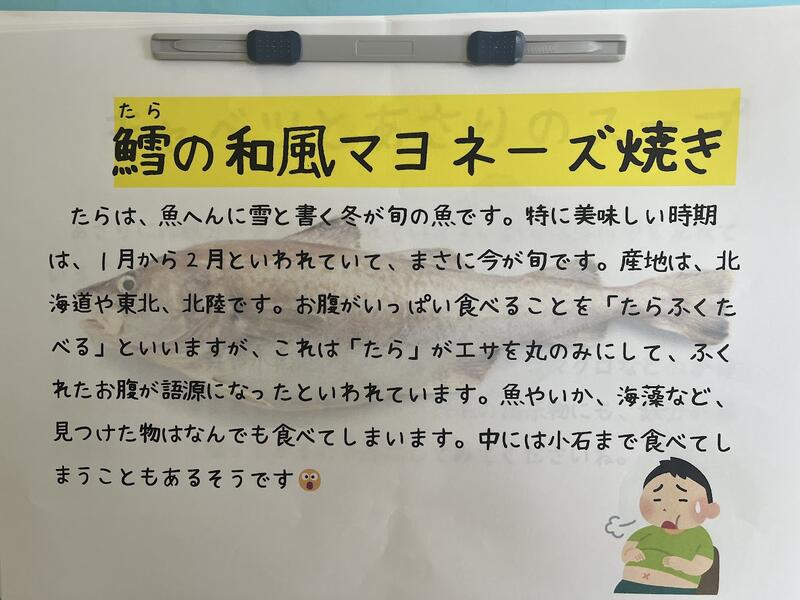 たら
鱈の和風マヨネーズ焼き
たらは、魚へんに雪と書く冬が旬の魚です。特に美味しい時期
は、1月から2月といわれていて、まさに今が旬です。産地は、北
海道や東北、北陸です。お腹がいっぱい食べることを「たらふくた
べる」といいますが、これは「たら」がエサを丸のみにして、ふく
れたお腹が語源になったといわれています。魚やいか、海藻など、
見つけた物はなんでも食べてしまいます。中には小石まで食べてし
まうこともあるそうです😮